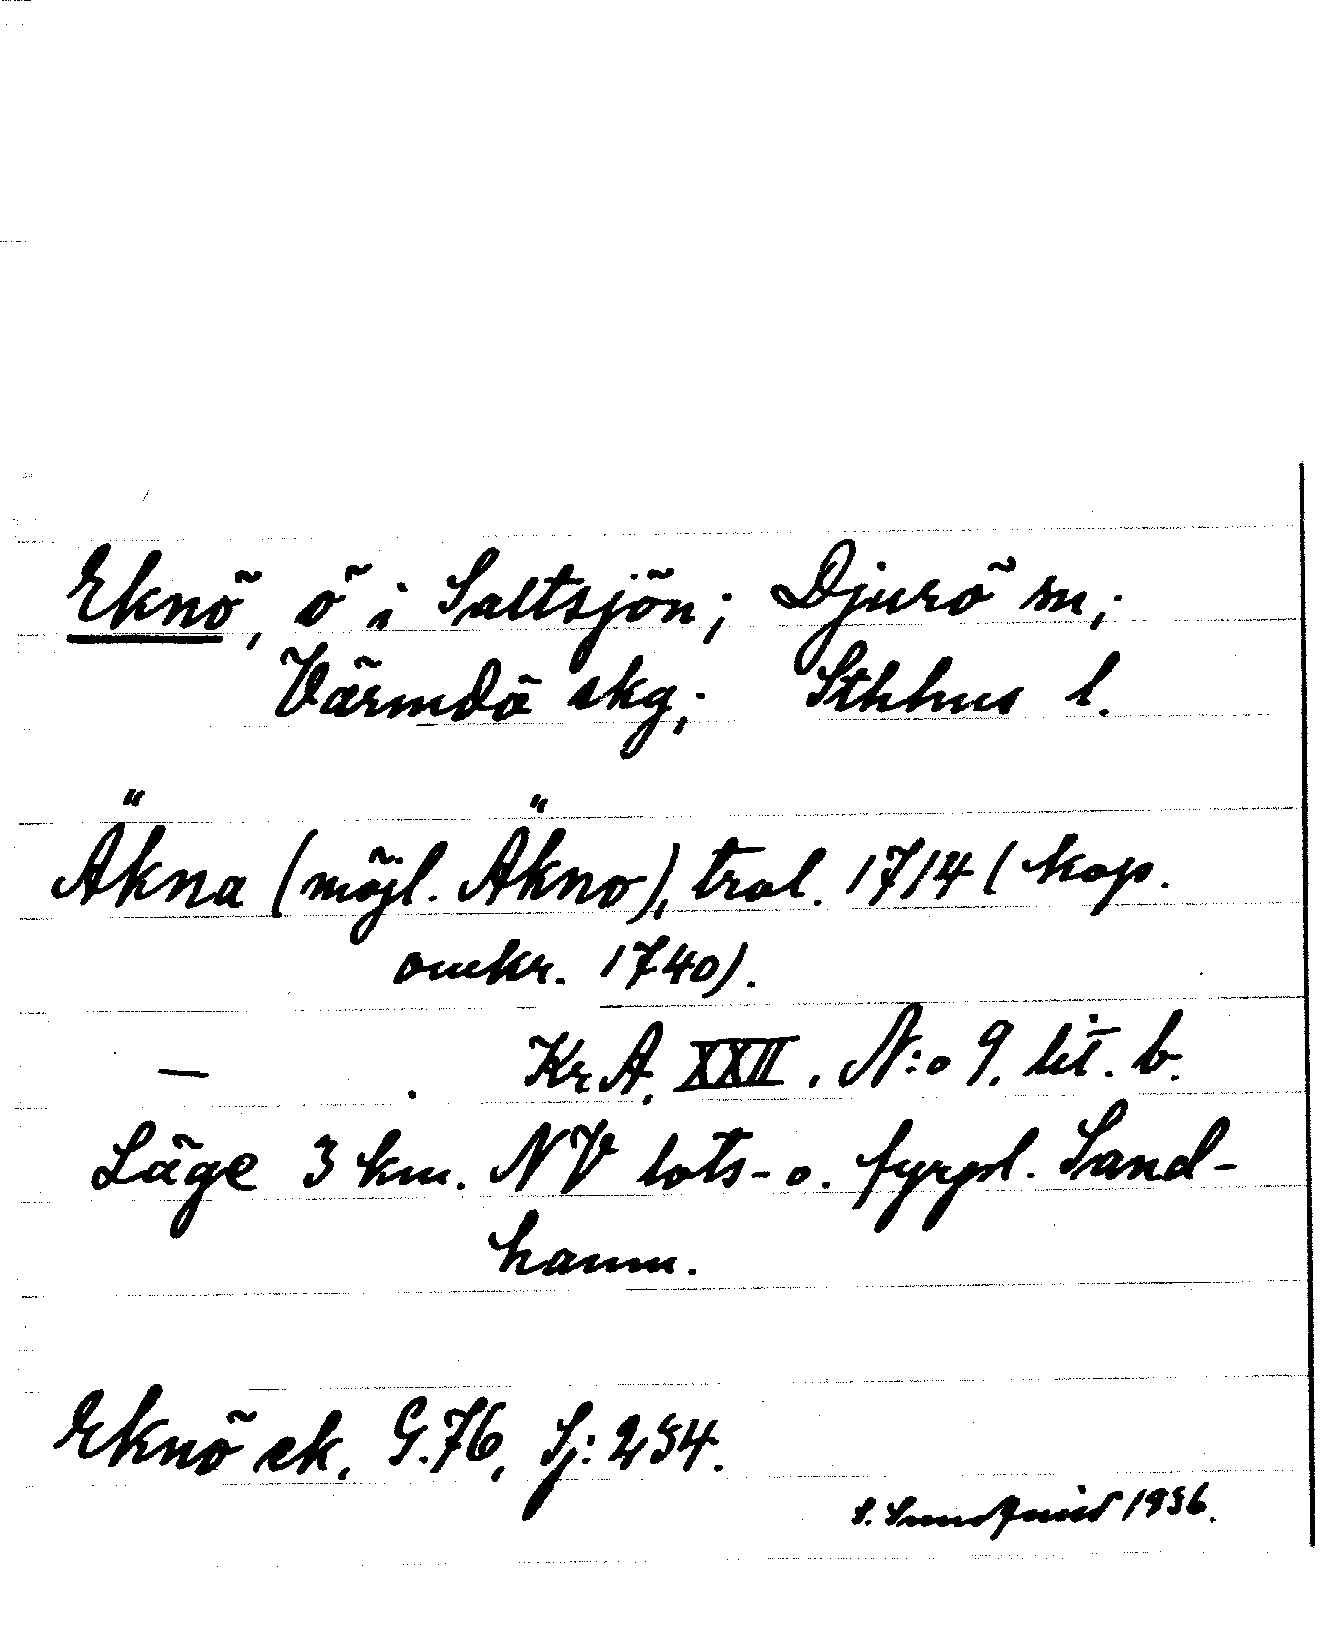 Eknö, ö i Saltsjön; Djurö sn;
Värmdö skg; Sthlms l.
Äkna (möjl. Äkno), trol. 1714 (kop.
omkr. 1740).
— . KrA. XXII. N:o 9. lit. b.
Läge 3 km. NV lots- o. fyrpl. Sand-
hamn.
Eknö ek. G.76, Sj: 254.
S. Sundqvist 1936.